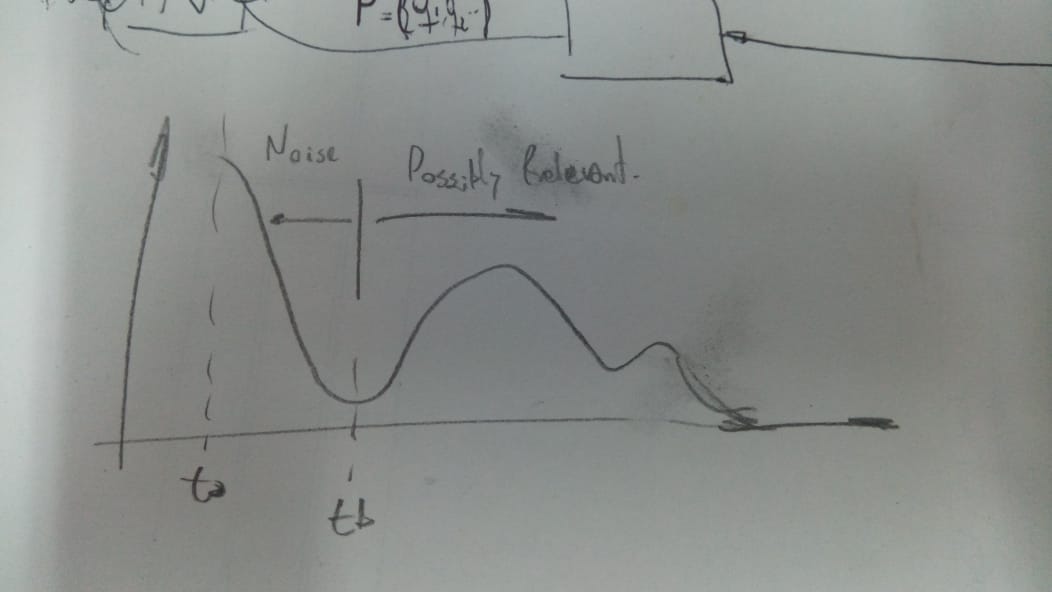 Noise
Possibly Relevant.
ta
tb